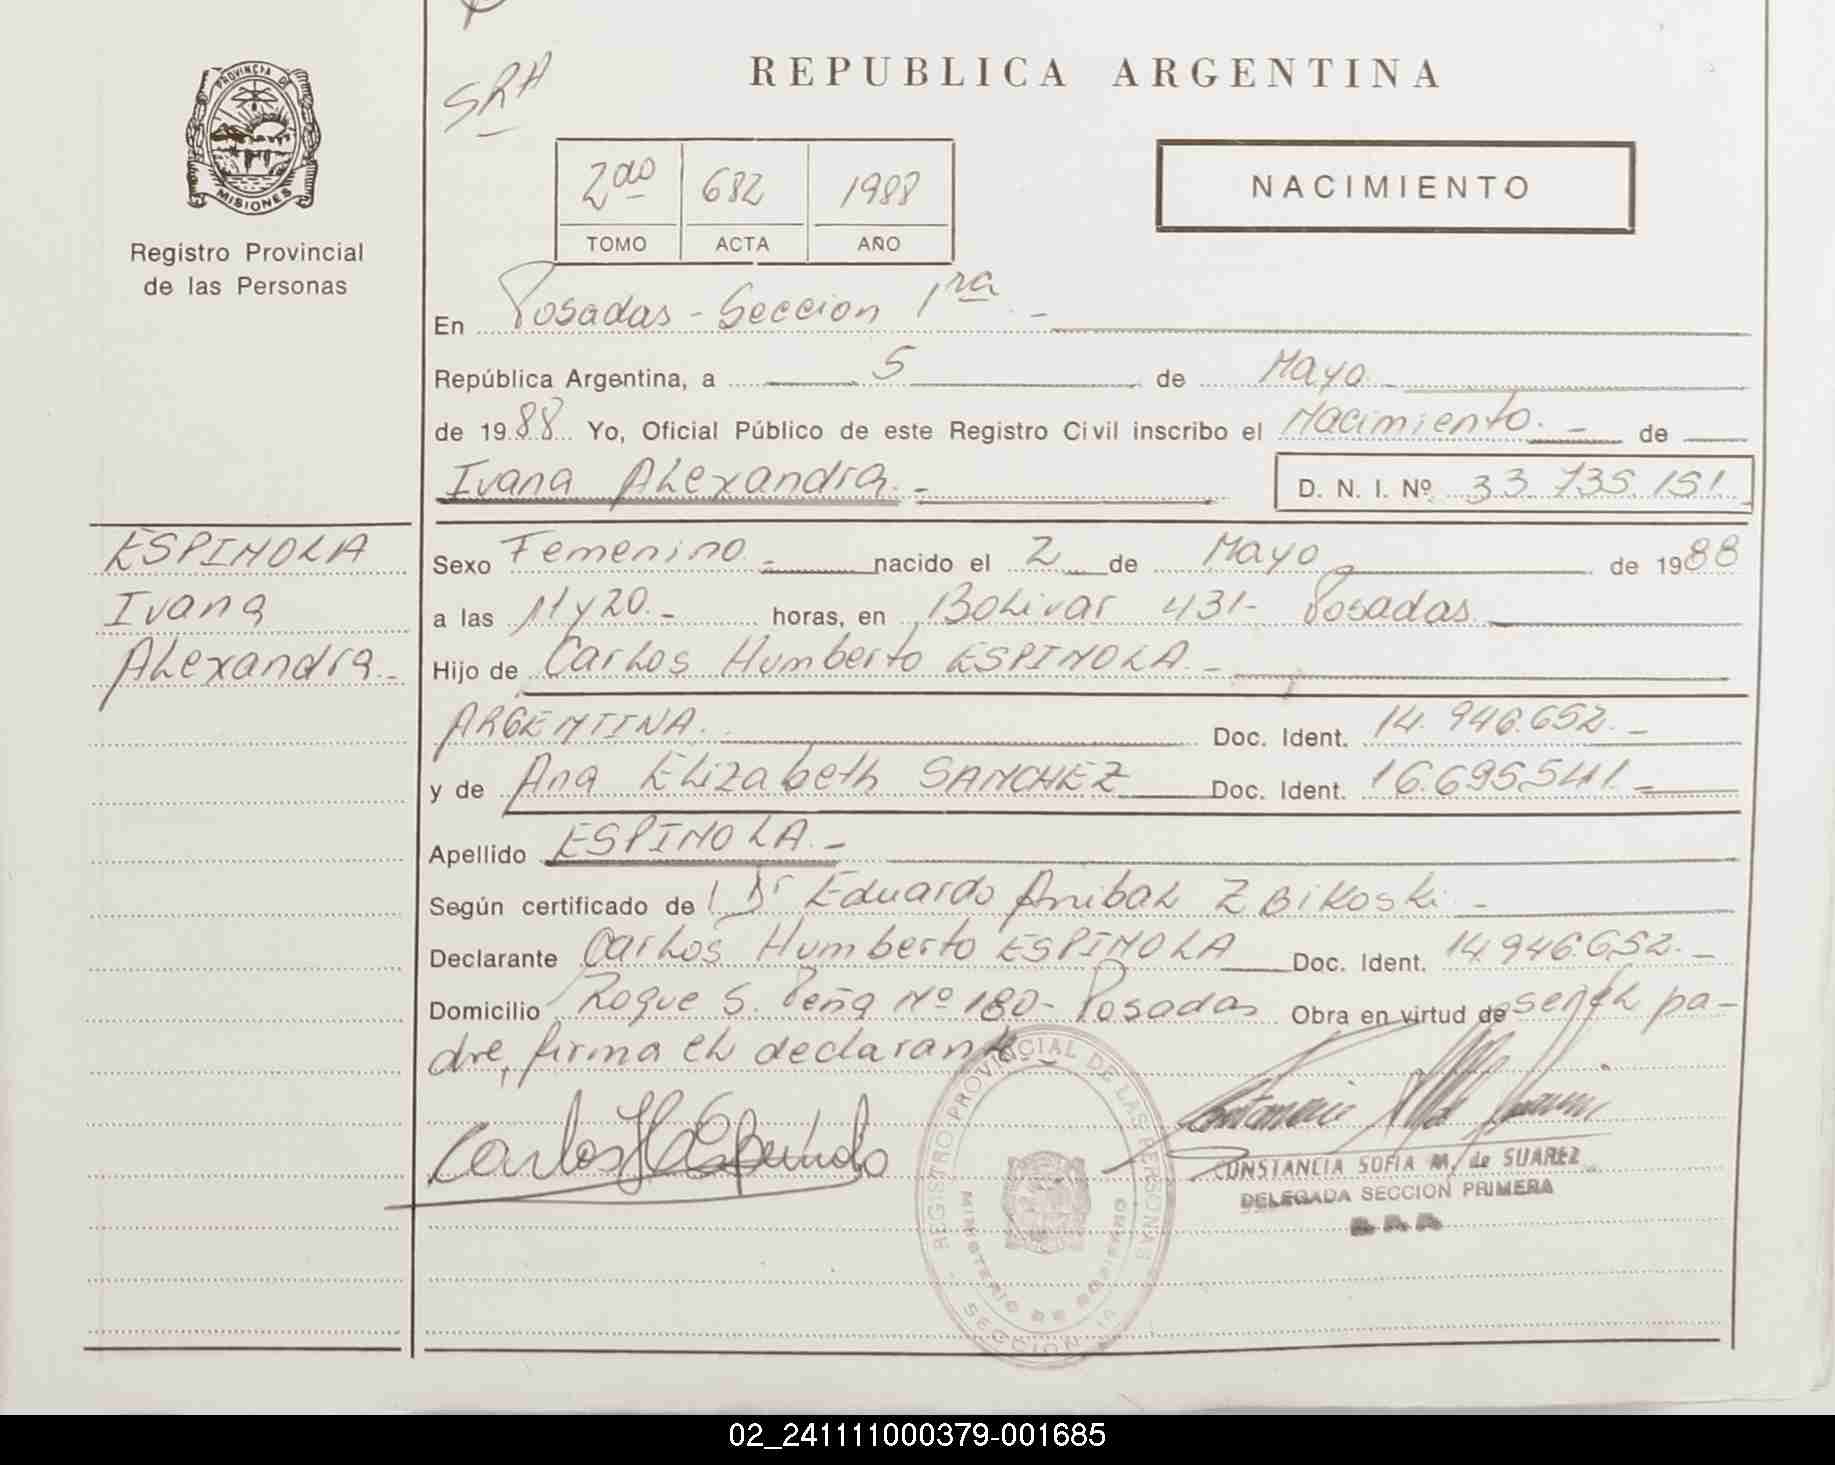 PROVINCIA DE
MISIONES
Registro Provincial
de las Personas
SRA
REPUBLICA ARGENTINA
2do 682 1988
TOMO ACTA AÑO
NACIMIENTO
En Posadas - Seccion 1ra -
República Argentina, a 5 de Mayo
de 1988 Yo, Oficial Público de este Registro Civil inscribo el Nacimiento. - de
Ivana Alexandra. - D. N. I. Nº 33.735.151.
ESPINOLA
Ivana
Alexandra. -
Sexo Femenino - nacido el 2 de Mayo de 1988
a las 11 y 20. - horas, en Bolivar 431- Posadas
Hijo de Carlos Humberto ESPINOLA. -
ARGENTINA. Doc. Ident. 14.946.652. -
y de Ana Elizabeth SANCHEZ Doc. Ident. 16.695.541. -
Apellido ESPINOLA. -
Según certificado de Dr Eduardo Anibal Zbikoski -
Declarante Carlos Humberto ESPINOLA Doc. Ident. 14.946.652. -
Domicilio Roque S. Peña Nº 180- Posadas Obra en virtud de ser el pa-
dre, firma el declarante
Carlos H Espindola
REGISTRO PROVINCIAL DE LAS PERSONAS
MINISTERIO DE GOBIERNO
SECCION 1a
CONSTANCIA SOFIA M. de SUAREZ
DELEGADA SECCION PRIMERA
02_241111000379-001685